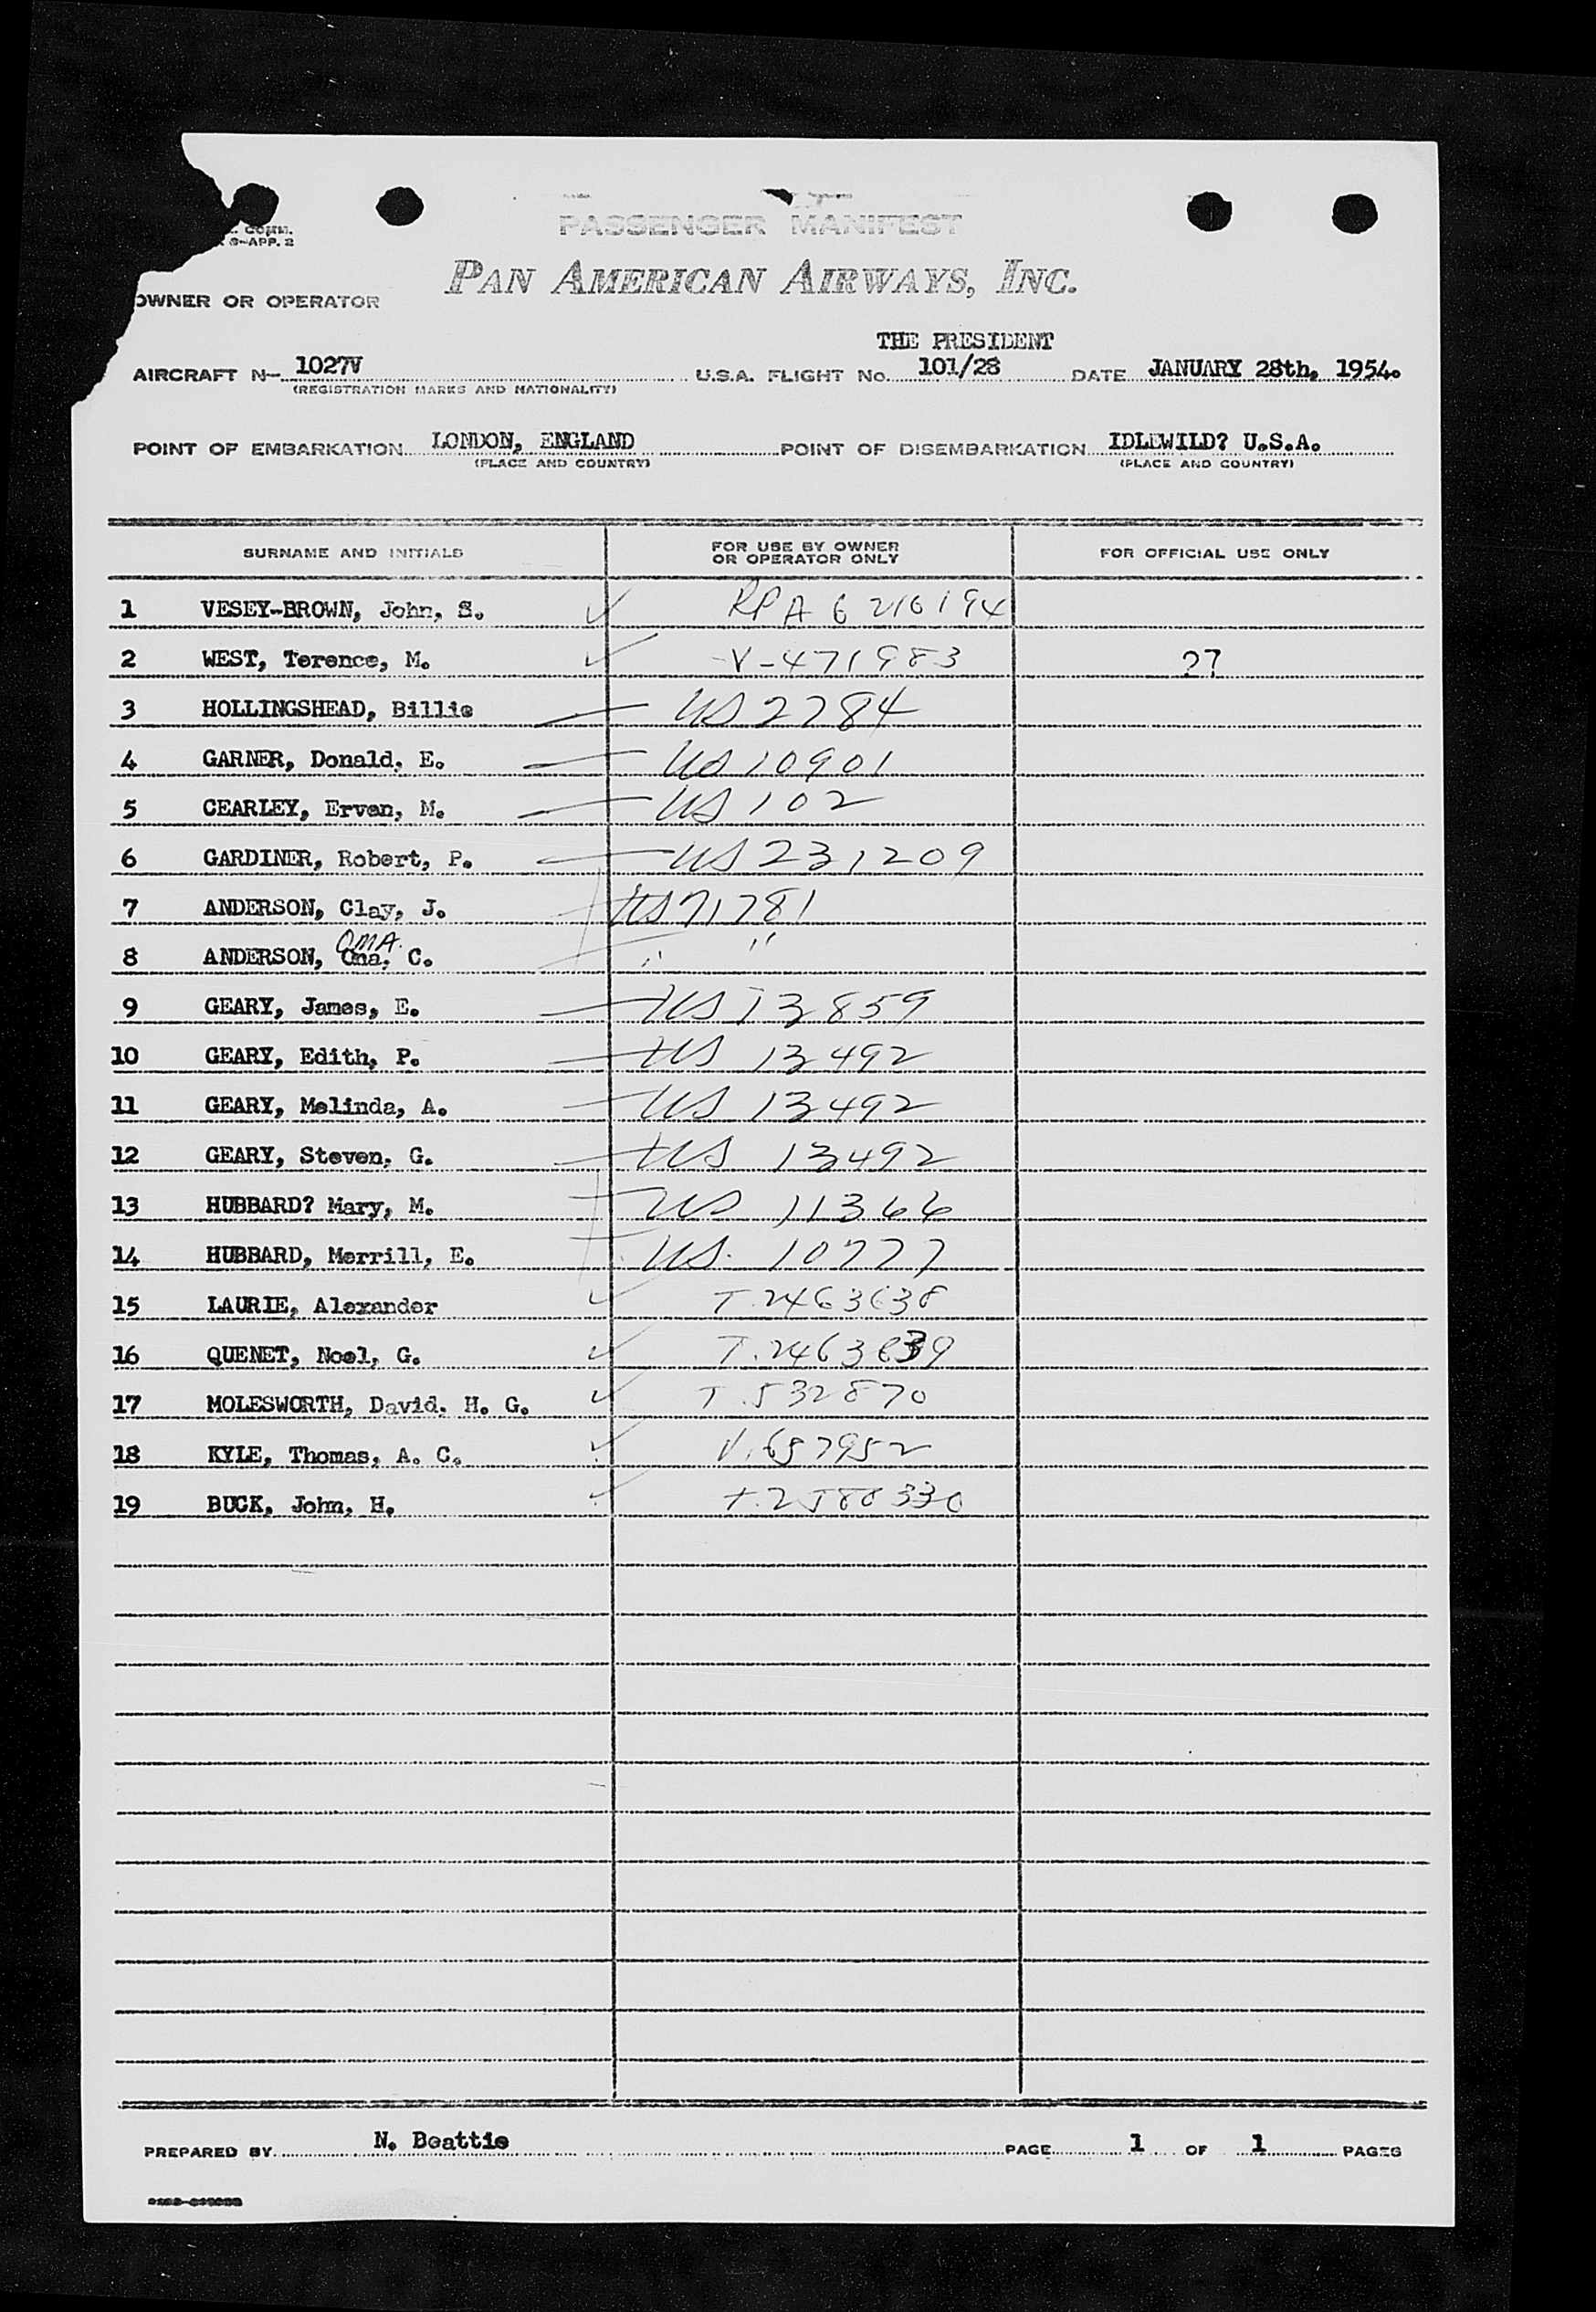 COMM.
6-APP. 2
PASSENGER MANIFEST
PAN AMERICAN AIRWAYS, INC.
OWNER OR OPERATOR
THE PRESIDENT
AIRCRAFT N- 1027V U.S.A. FLIGHT No. 101/28 DATE JANUARY 28th, 1954.
(REGISTRATION MARKS AND NATIONALITY)
POINT OF EMBARKATION LONDON, ENGLAND POINT OF DISEMBARKATION IDLEWILD? U.S.A.
(PLACE AND COUNTRY) (PLACE AND COUNTRY)
SURNAME AND INITIALS FOR USE BY OWNER OR OPERATOR ONLY FOR OFFICIAL USE ONLY
1 VESEY-BROWN, John, S. RPA 6 216194
2 WEST, Terence, M. V-471983 27
3 HOLLINGSHEAD, Billie US 2784
4 GARNER, Donald, E. US 10901
5 CEARLEY, Ervan, M. US 102
6 GARDINER, Robert, P. US 231209
7 ANDERSON, Clay, J. US 71781
OMA.
8 ANDERSON, Ona, C. " "
9 GEARY, James, E. US 13859
10 GEARY, Edith, P. US 13492
11 GEARY, Melinda, A. US 13492
12 GEARY, Steven, G. US 13492
13 HUBBARD? Mary, M. US 11366
14 HUBBARD, Merrill, E. US. 10777
15 LAURIE, Alexander T.2463638
16 QUENET, Noel, G. T.2463639
17 MOLESWORTH, David, H. G. T.532870
18 KYLE, Thomas, A. C. V.657952
19 BUCK, John, H. T.2588330
PREPARED BY N. Beattie PAGE 1 OF 1 PAGES